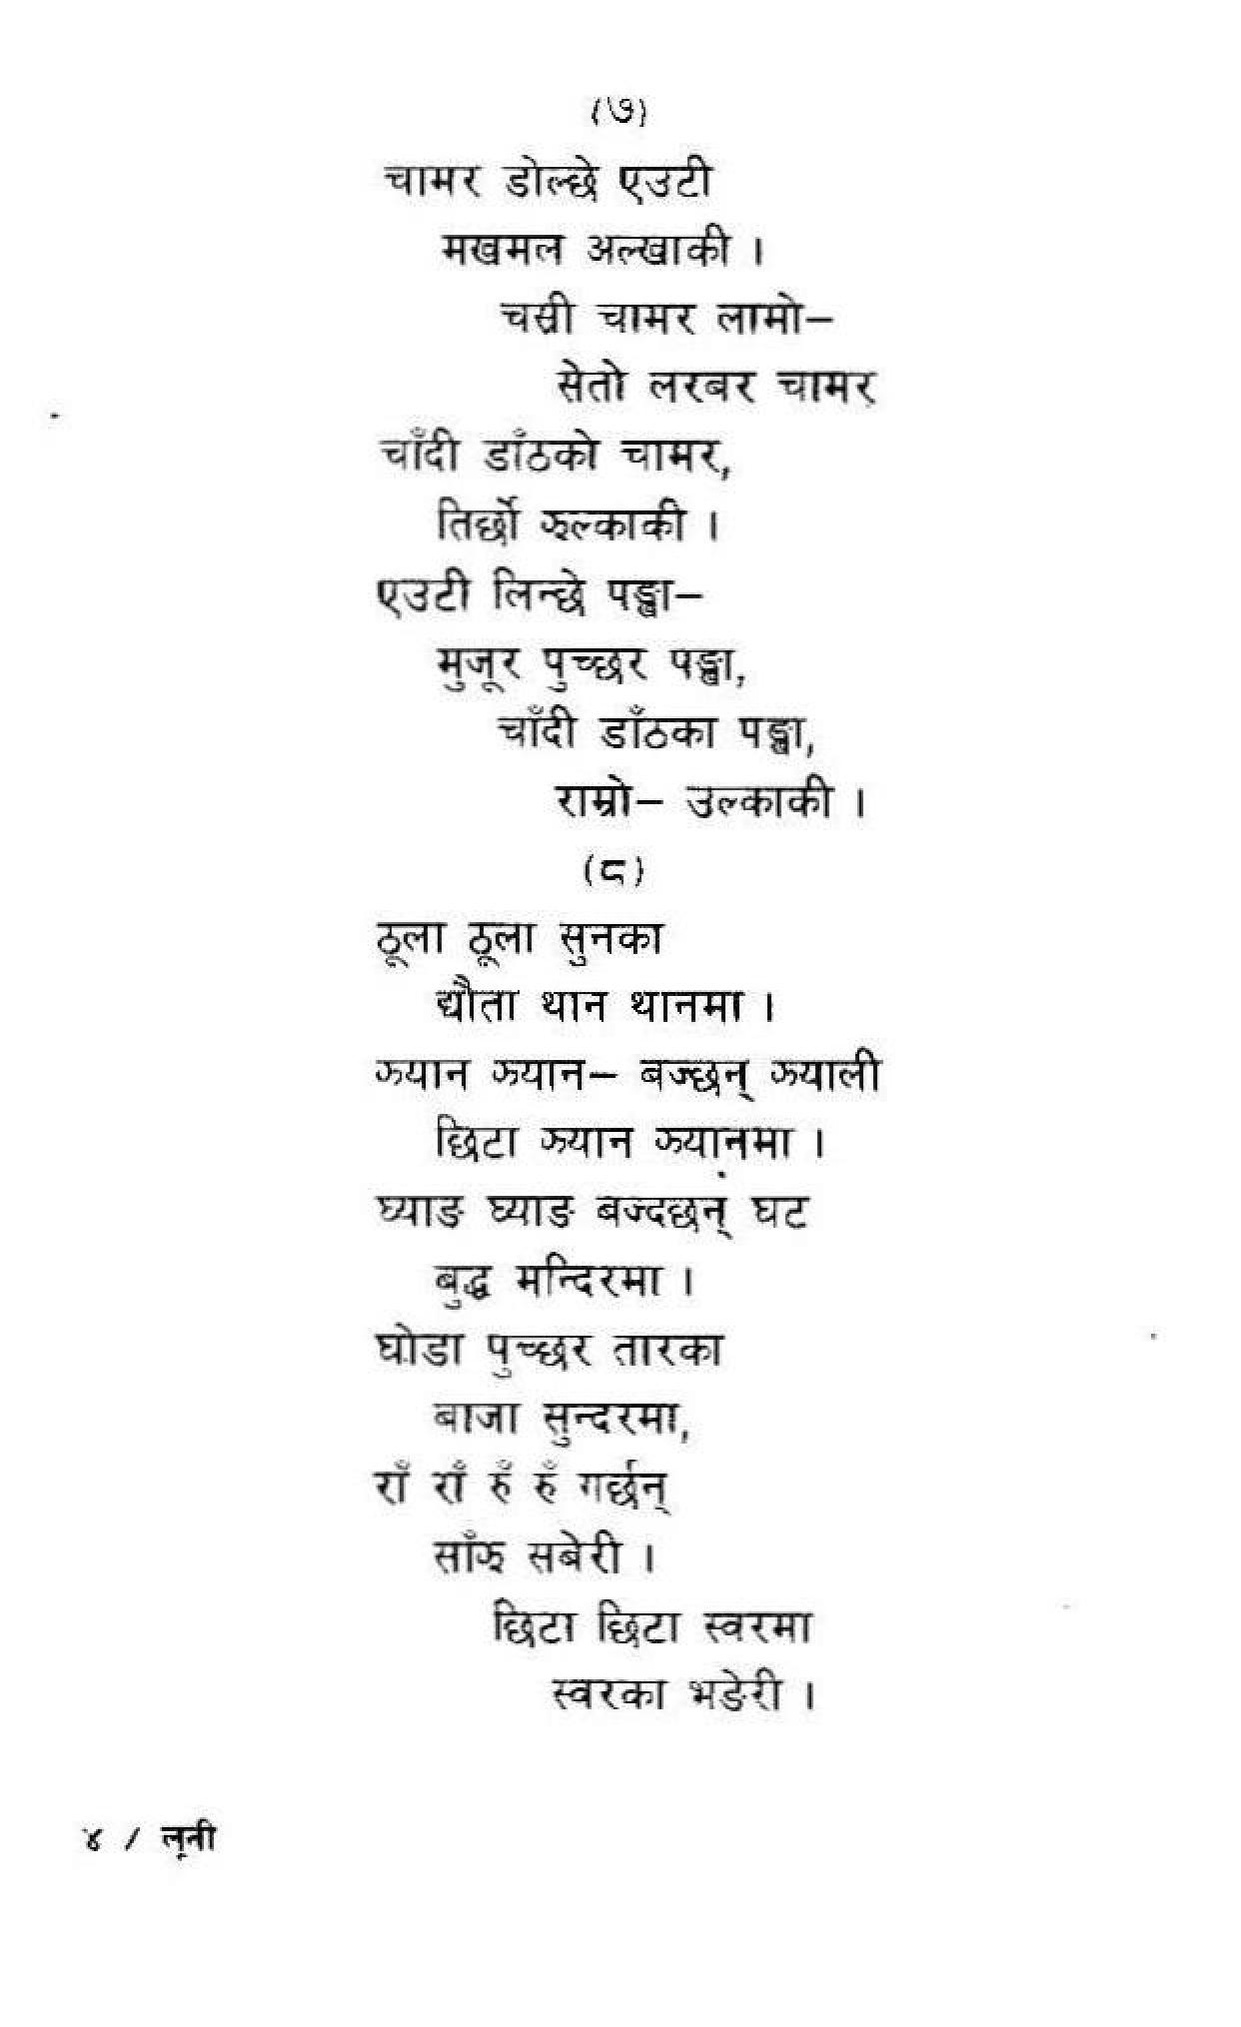 (७)
चामर डोल्छे एउटी
मखमल अल्खाकी ।
चस्री चामर लामो–
सेतो लरबर चामर
चाँदी डाँठको चामर,
तिर्छो झल्काकी ।
एउटी लिन्छे पङ्खा–
मुजूर पुच्छर पङ्खा,
चाँदी डाँठका पङ्खा,
राम्रो– उल्काकी ।
(८)
ठूला ठूला सुनका
द्यौता थान थानमा ।
झ्यान झ्यान– बज्छन् झ्याली
छिटा झ्यान झ्यानमा ।
घ्याङ घ्याङ बज्दछन् घट
बुद्ध मन्दिरमा ।
घोडा पुच्छर तारका
बाजा सुन्दरमा,
राँ राँ हँ हँ गर्छन्
साँझ सबेरी ।
छिटा छिटा स्वरमा
स्वरका भङेरी ।
४ / लूनी